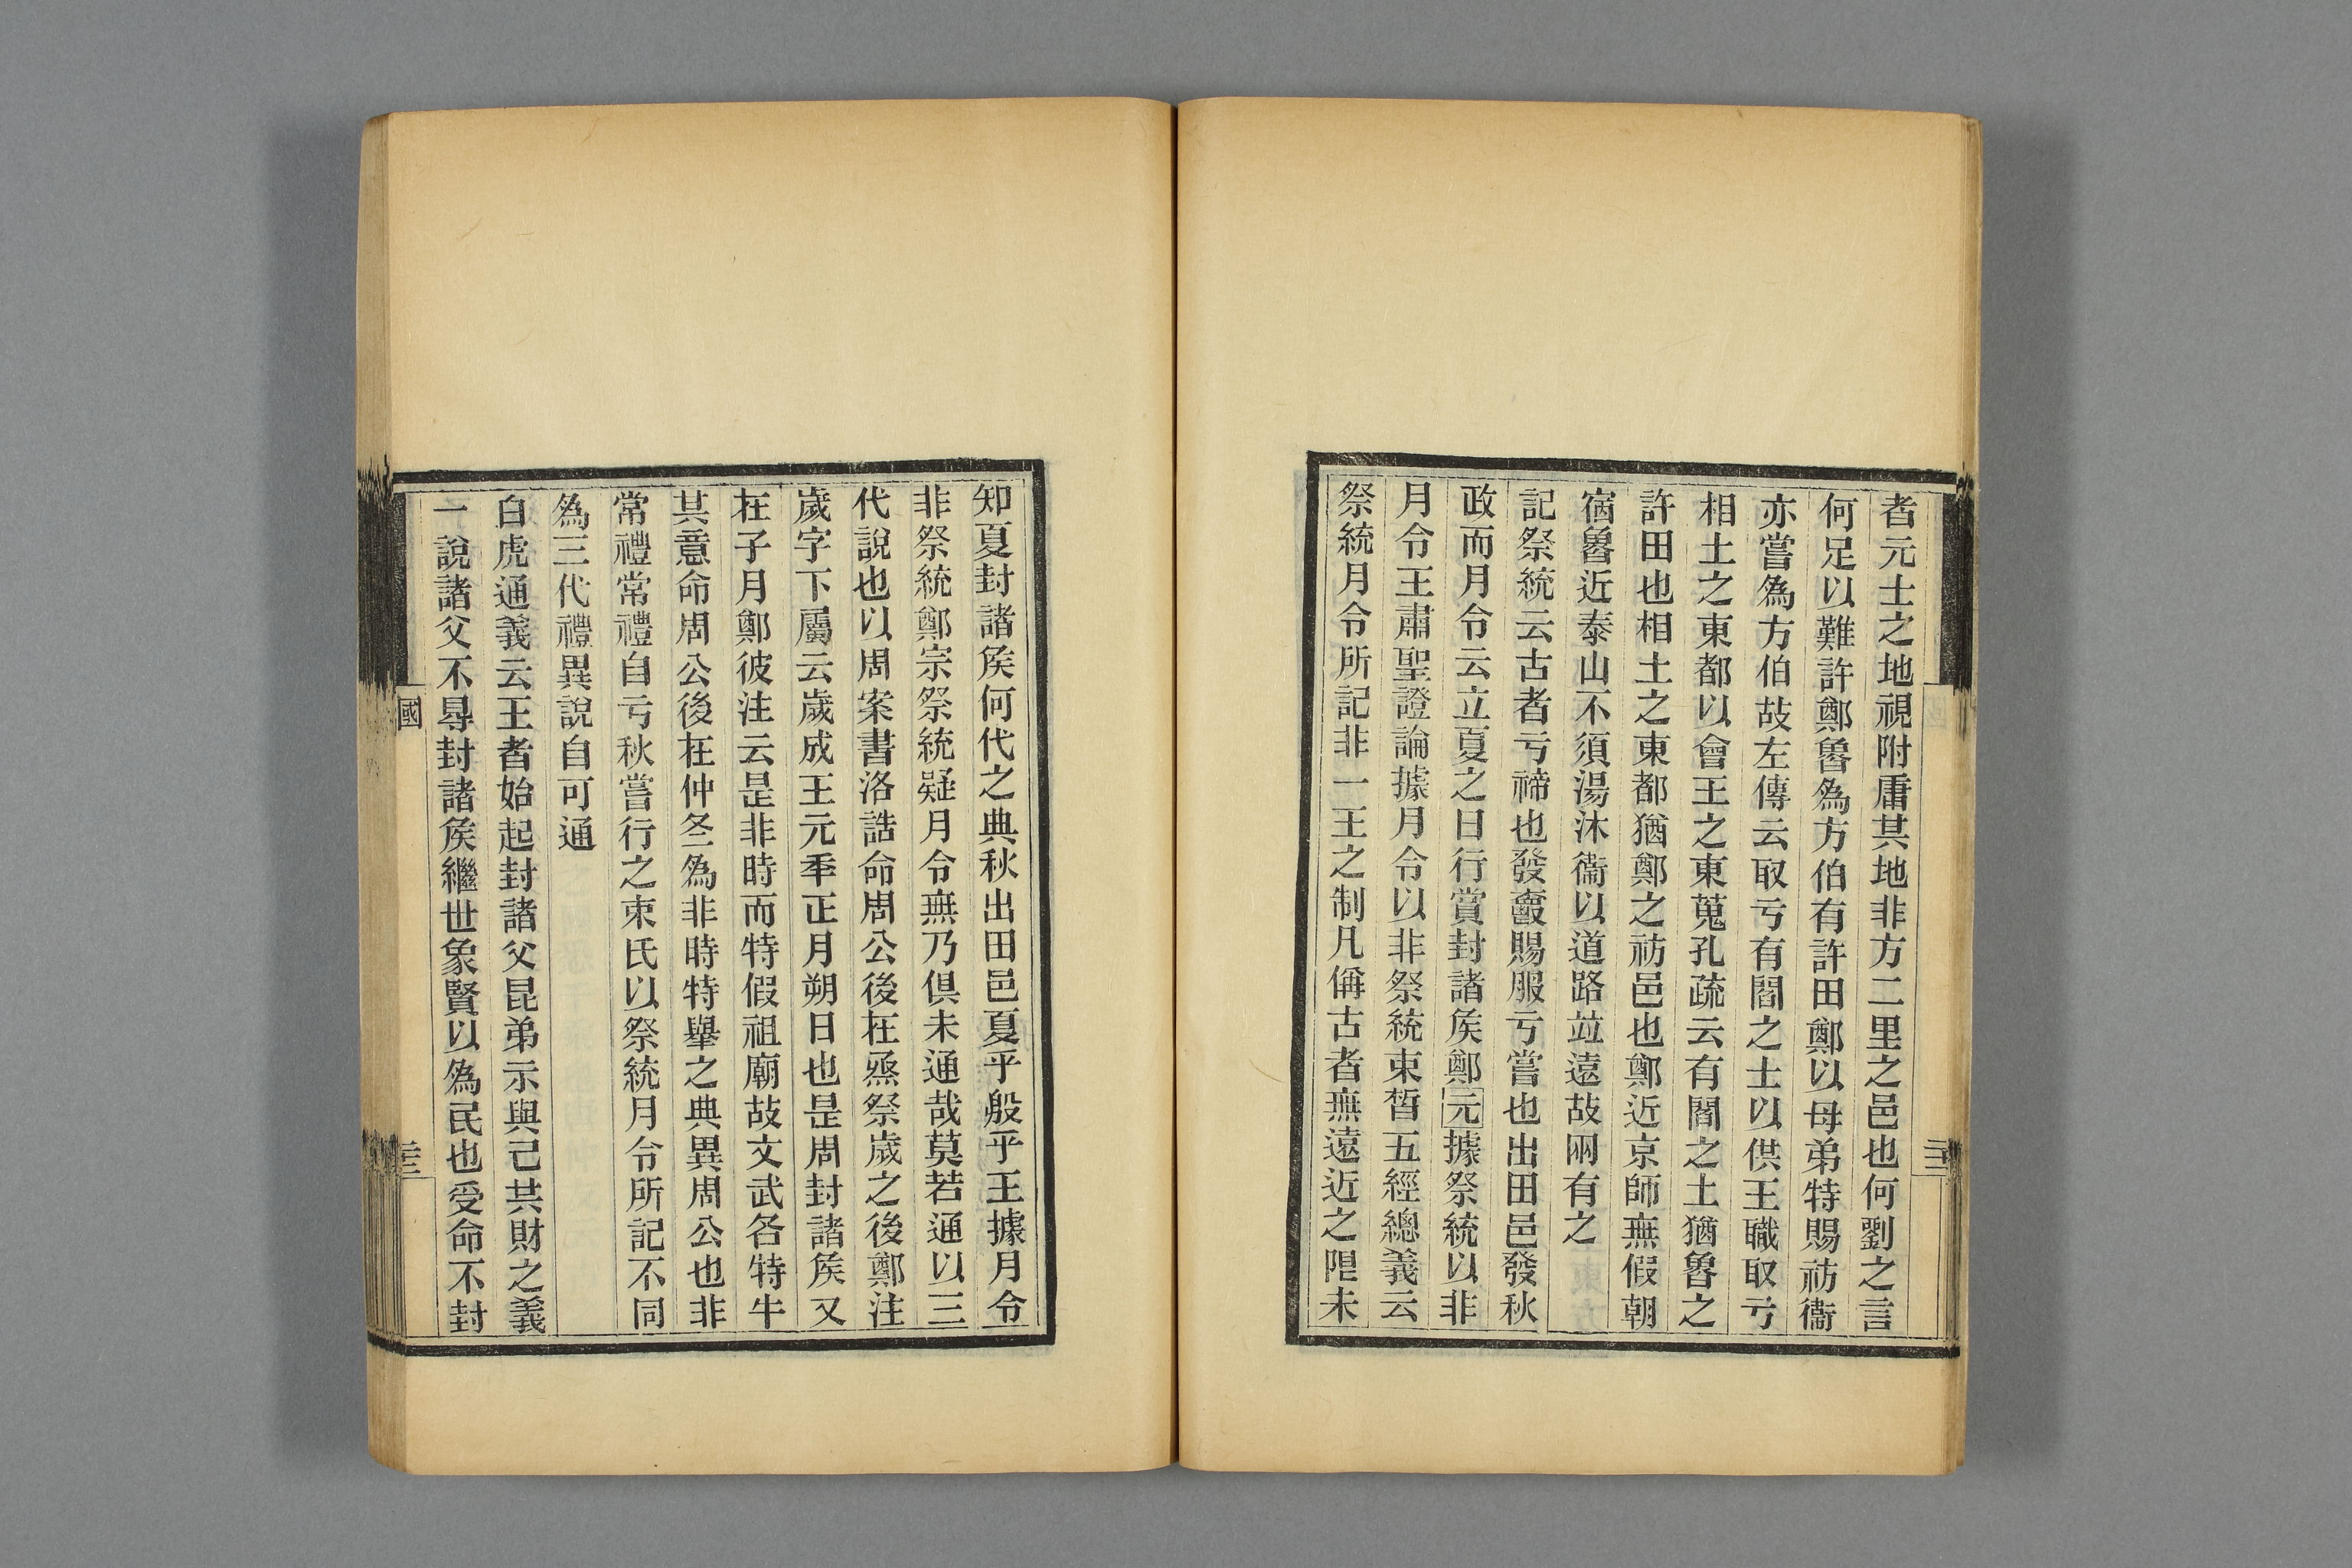 者元士之地視附庸其地非方二里之邑也何劉之言
何足以難許鄭魯爲方伯有許田鄭以母弟特賜祊衞
亦嘗爲方伯故左傳云取亏有閻之士以供王職取亏
相土之東都以會王之東蒐孔疏云有閻之土猶魯之
許田也相土之東都猶鄭之祊邑也鄭近京師無假朝
宿魯近泰山不須湯沐衞以道路竝遠故网有之
記祭統云古者亏禘也發爵賜服亏嘗也出田邑發秋
政而月令云立夏之日行賞封諸矦鄭元據祭統以非
月令王肅聖證論據月令以非祭統東晳五經總義云
祭統月令所記非一王之制凡偁古者無遠近之限未
知夏封諸矦何代之典秋出田邑夏乎殷乎王據月令
非祭統鄭宗祭統疑月令無乃俱未通哉莫若通以三
代說也以周案書洛誥命周公後在烝祭歲之後鄭注
歲字下屬云歲成王元秊正月朔日也是周封諸矦又
在子月鄭彼注云是非時而特假祖廟故文武各特牛
其意命周公後在仲冬爲非時特舉之典異周公也非
常禮常禮自亏秋嘗行之束氏以祭統月令所記不同
爲三代禮異說自可通
白虎通義云王者始起封諸父昆弟示與己共財之義
一說諸父不㝵封諸矦繼世象賢以爲民也受命不封
國
三十三